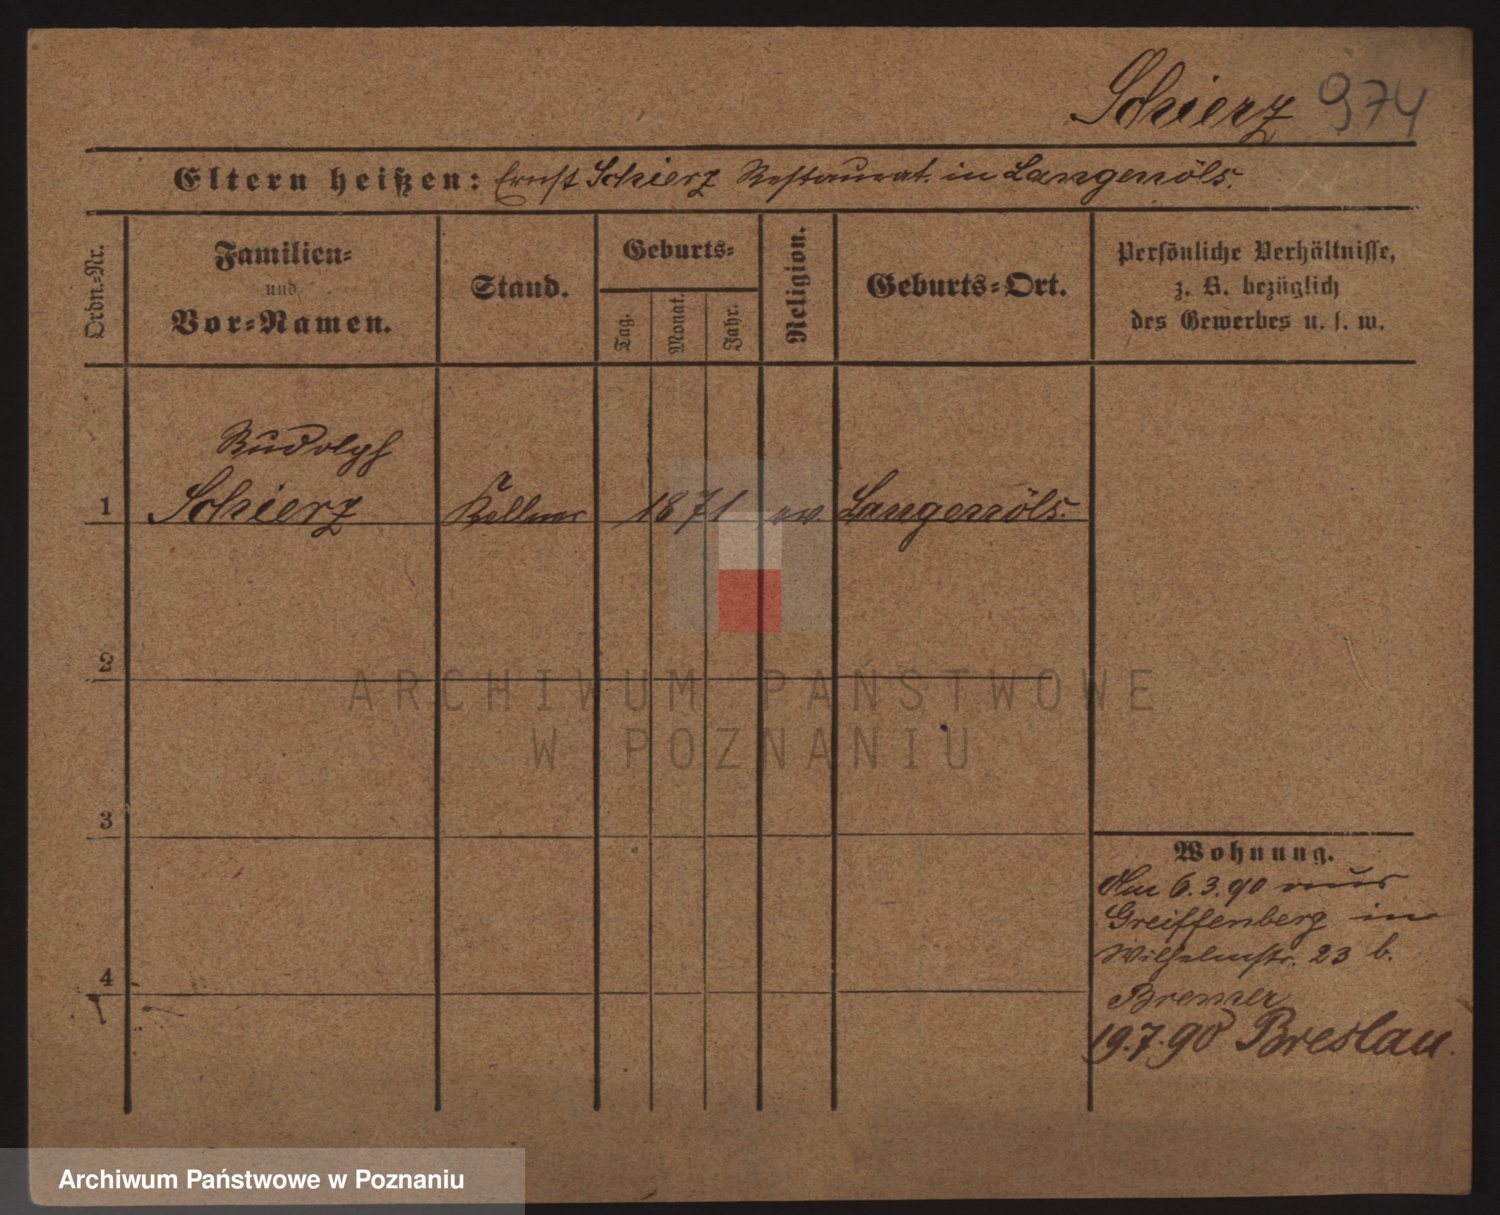 Schierz 974
Eltern heißen: Ernst Schierz Restaurat. in Langenöls.
Ordn.-Nr.
Familien-
und
Vor-Namen.
Stand.
Geburts-
Tag.
Monat.
Jahr.
Religion.
Geburts-Ort.
Persönliche Verhältnisse,
z. B. bezüglich
des Gewerbes u. s. w.
Rudolph
1 Schierz Kellner 1871 ev. Langenöls.
2
3
4
Wohnung.
Am 6.3.90 aus
Greiffenberg in
Wilhelmstr. 23 b.
Bremer
19.7.90 Breslau.
ARCHIWUM PAŃSTWOWE
W POZNANIU
Archiwum Państwowe w Poznaniu